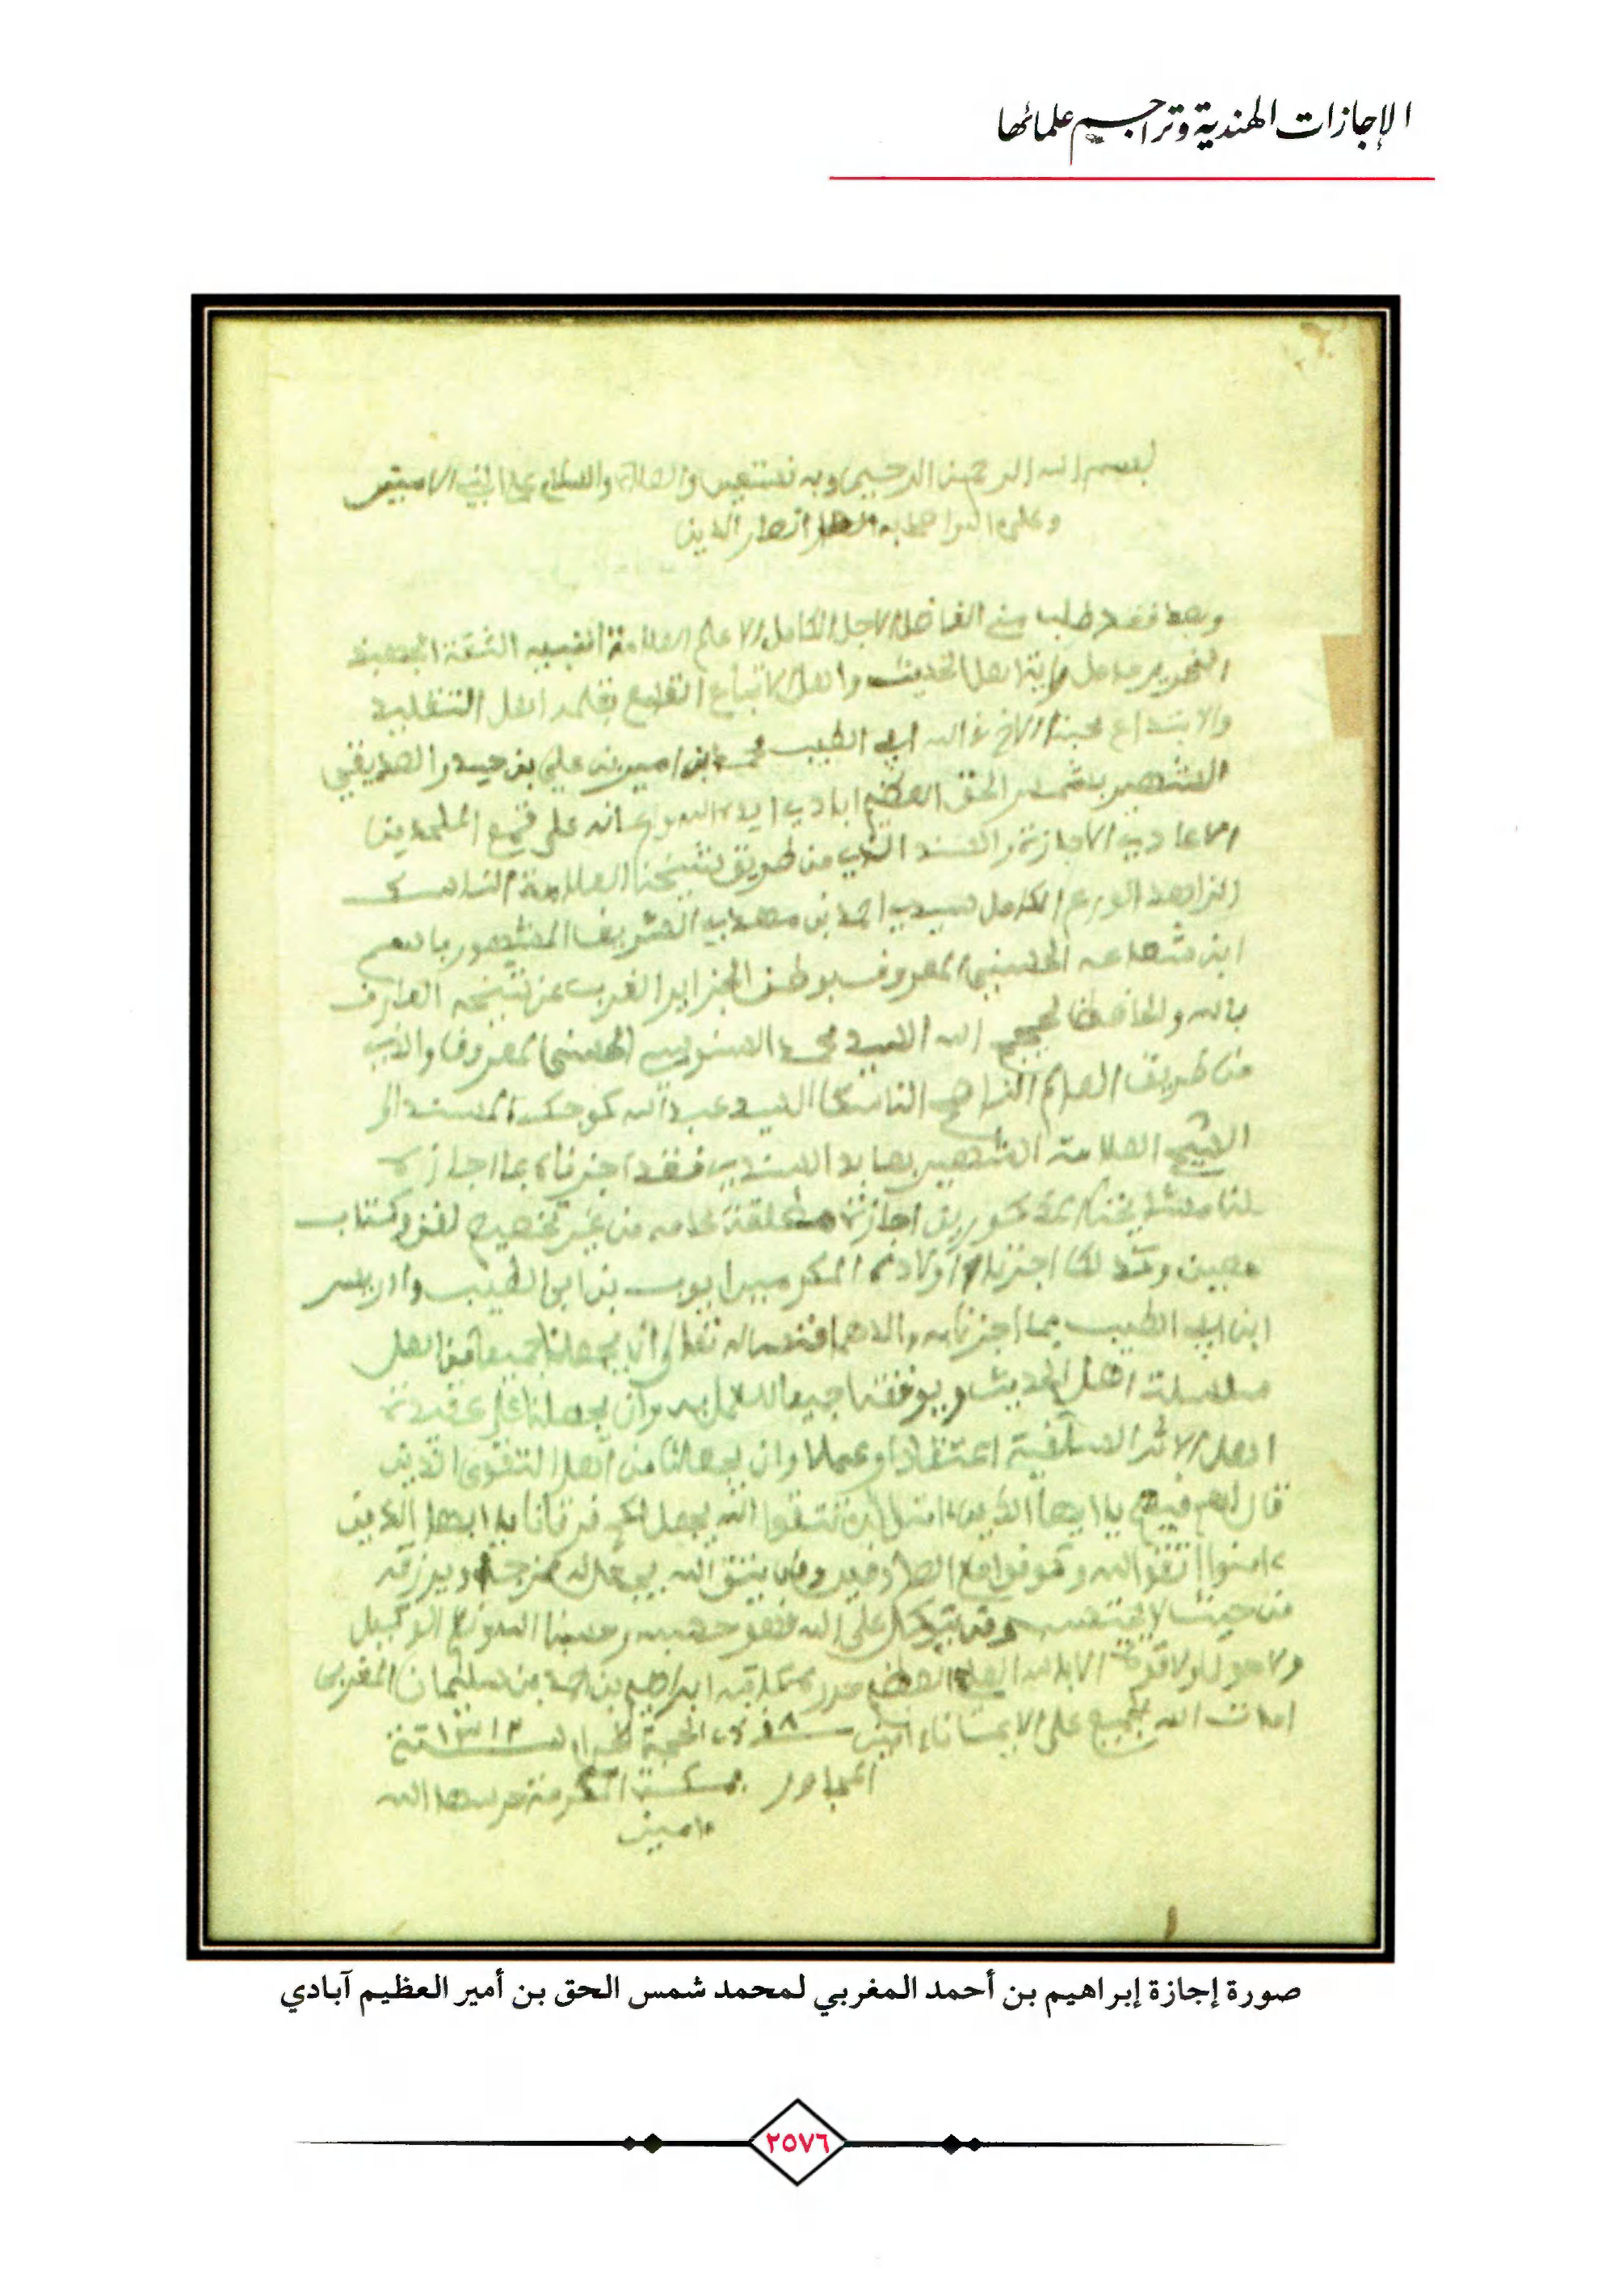 الإجازات الهندية وتراجم علمائها
بسم الله الرحمن الرحيم وبه نستعين والصلاة والسلام على النبي الامين
وعلى اله واصحابه انصار الدين
وبعد فقد طلب مني الفاضل الاجل الكامل الاعلم العلامة الفقيه الثقة
النحرير حامل راية اهل الحديث واهل الاتباع اهل التقليد
والابتداع محبنا الاخ في الله ابي الطيب محمد بن امير بن علي بن حيدر الصديقي
الشهير بشمس الحق العظيم ابادي ايده الله واعانه على قمع الملحدين
الاجازة والسند الذي من طريق شيخنا العلامة الناسك
الزاهد الورع الكامل سيدي احمد بن الشريف المشهور باسم
ابن الحسيني المعروف بوطن الجزاير الغرب عن شيخه العارف
بالله السيد محمد السنوسي الحسني المعروف والذي
من طريق العالم الناصح الناسك السيد عبد الله كوجك المسند الى
الشيخ العلامة الشهير بعابد السندي فقد اجزناه بما اجازه
لنا اجازة مطلقة عامه من غير تخصيص لفن وكتاب
معين وكذلك اجزنا اولاده المكرمين ايوب بن ابي الطيب وادريس
ابن ابي الطيب بما اجزنا به والدهما فنسال الله تعالى ان يجعلنا جميعا من اهل
سلسلة اهل الحديث ويوفقنا جميعا للعمل به وان يجعلنا على عقيدة
اهل الاثر السلفية اعتقادا وعملا وان يجعلنا من اهل التقوى الذين
قال لهم فيهم يا ايها الذين ءامنوا ان تتقوا الله يجعل لكم فرقانا يا ايها الذين
ءامنوا اتقوا الله وكونوا مع الصادقين ومن يتق الله يجعل له مخرجا ويرزقه
من حيث لا يحتسب ومن يتوكل على الله فهو حسبه وحسبنا الله ونعم الوكيل
ولا حول ولا قوة الا بالله العلي العظيم ابراهيم بن احمد بن سليمان المغربي
امات الله الجميع على الايمان ءامين ١٨ ذي الحجة الحرام سنة ١٣١٢
المجاور بمكة المكرمة حرسها الله
ءامين
صورة إجازة إبراهيم بن أحمد المغربي لمحمد شمس الحق بن أمير العظيم آبادي
٢٥٧٦